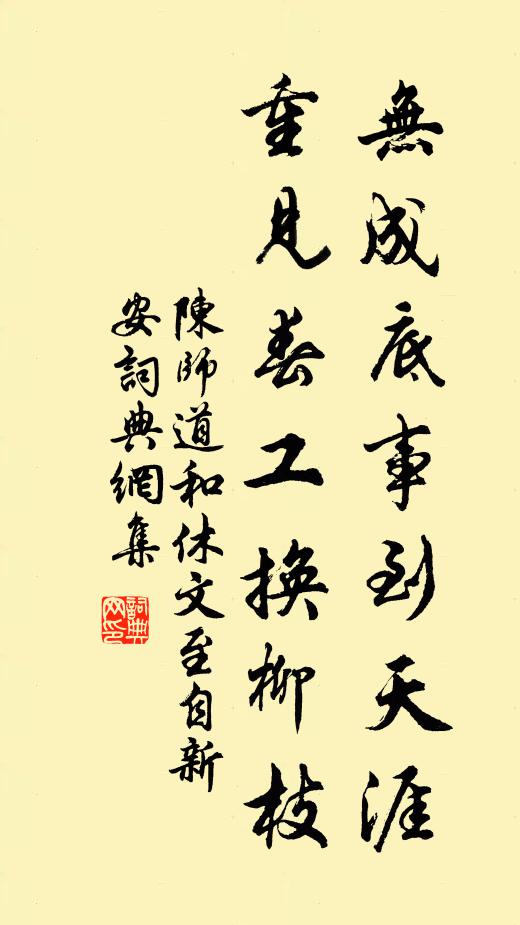 無成底事到天涯
重見春工換柳枝
陳師道和休文至自新
安詞典網集
詞典
网印